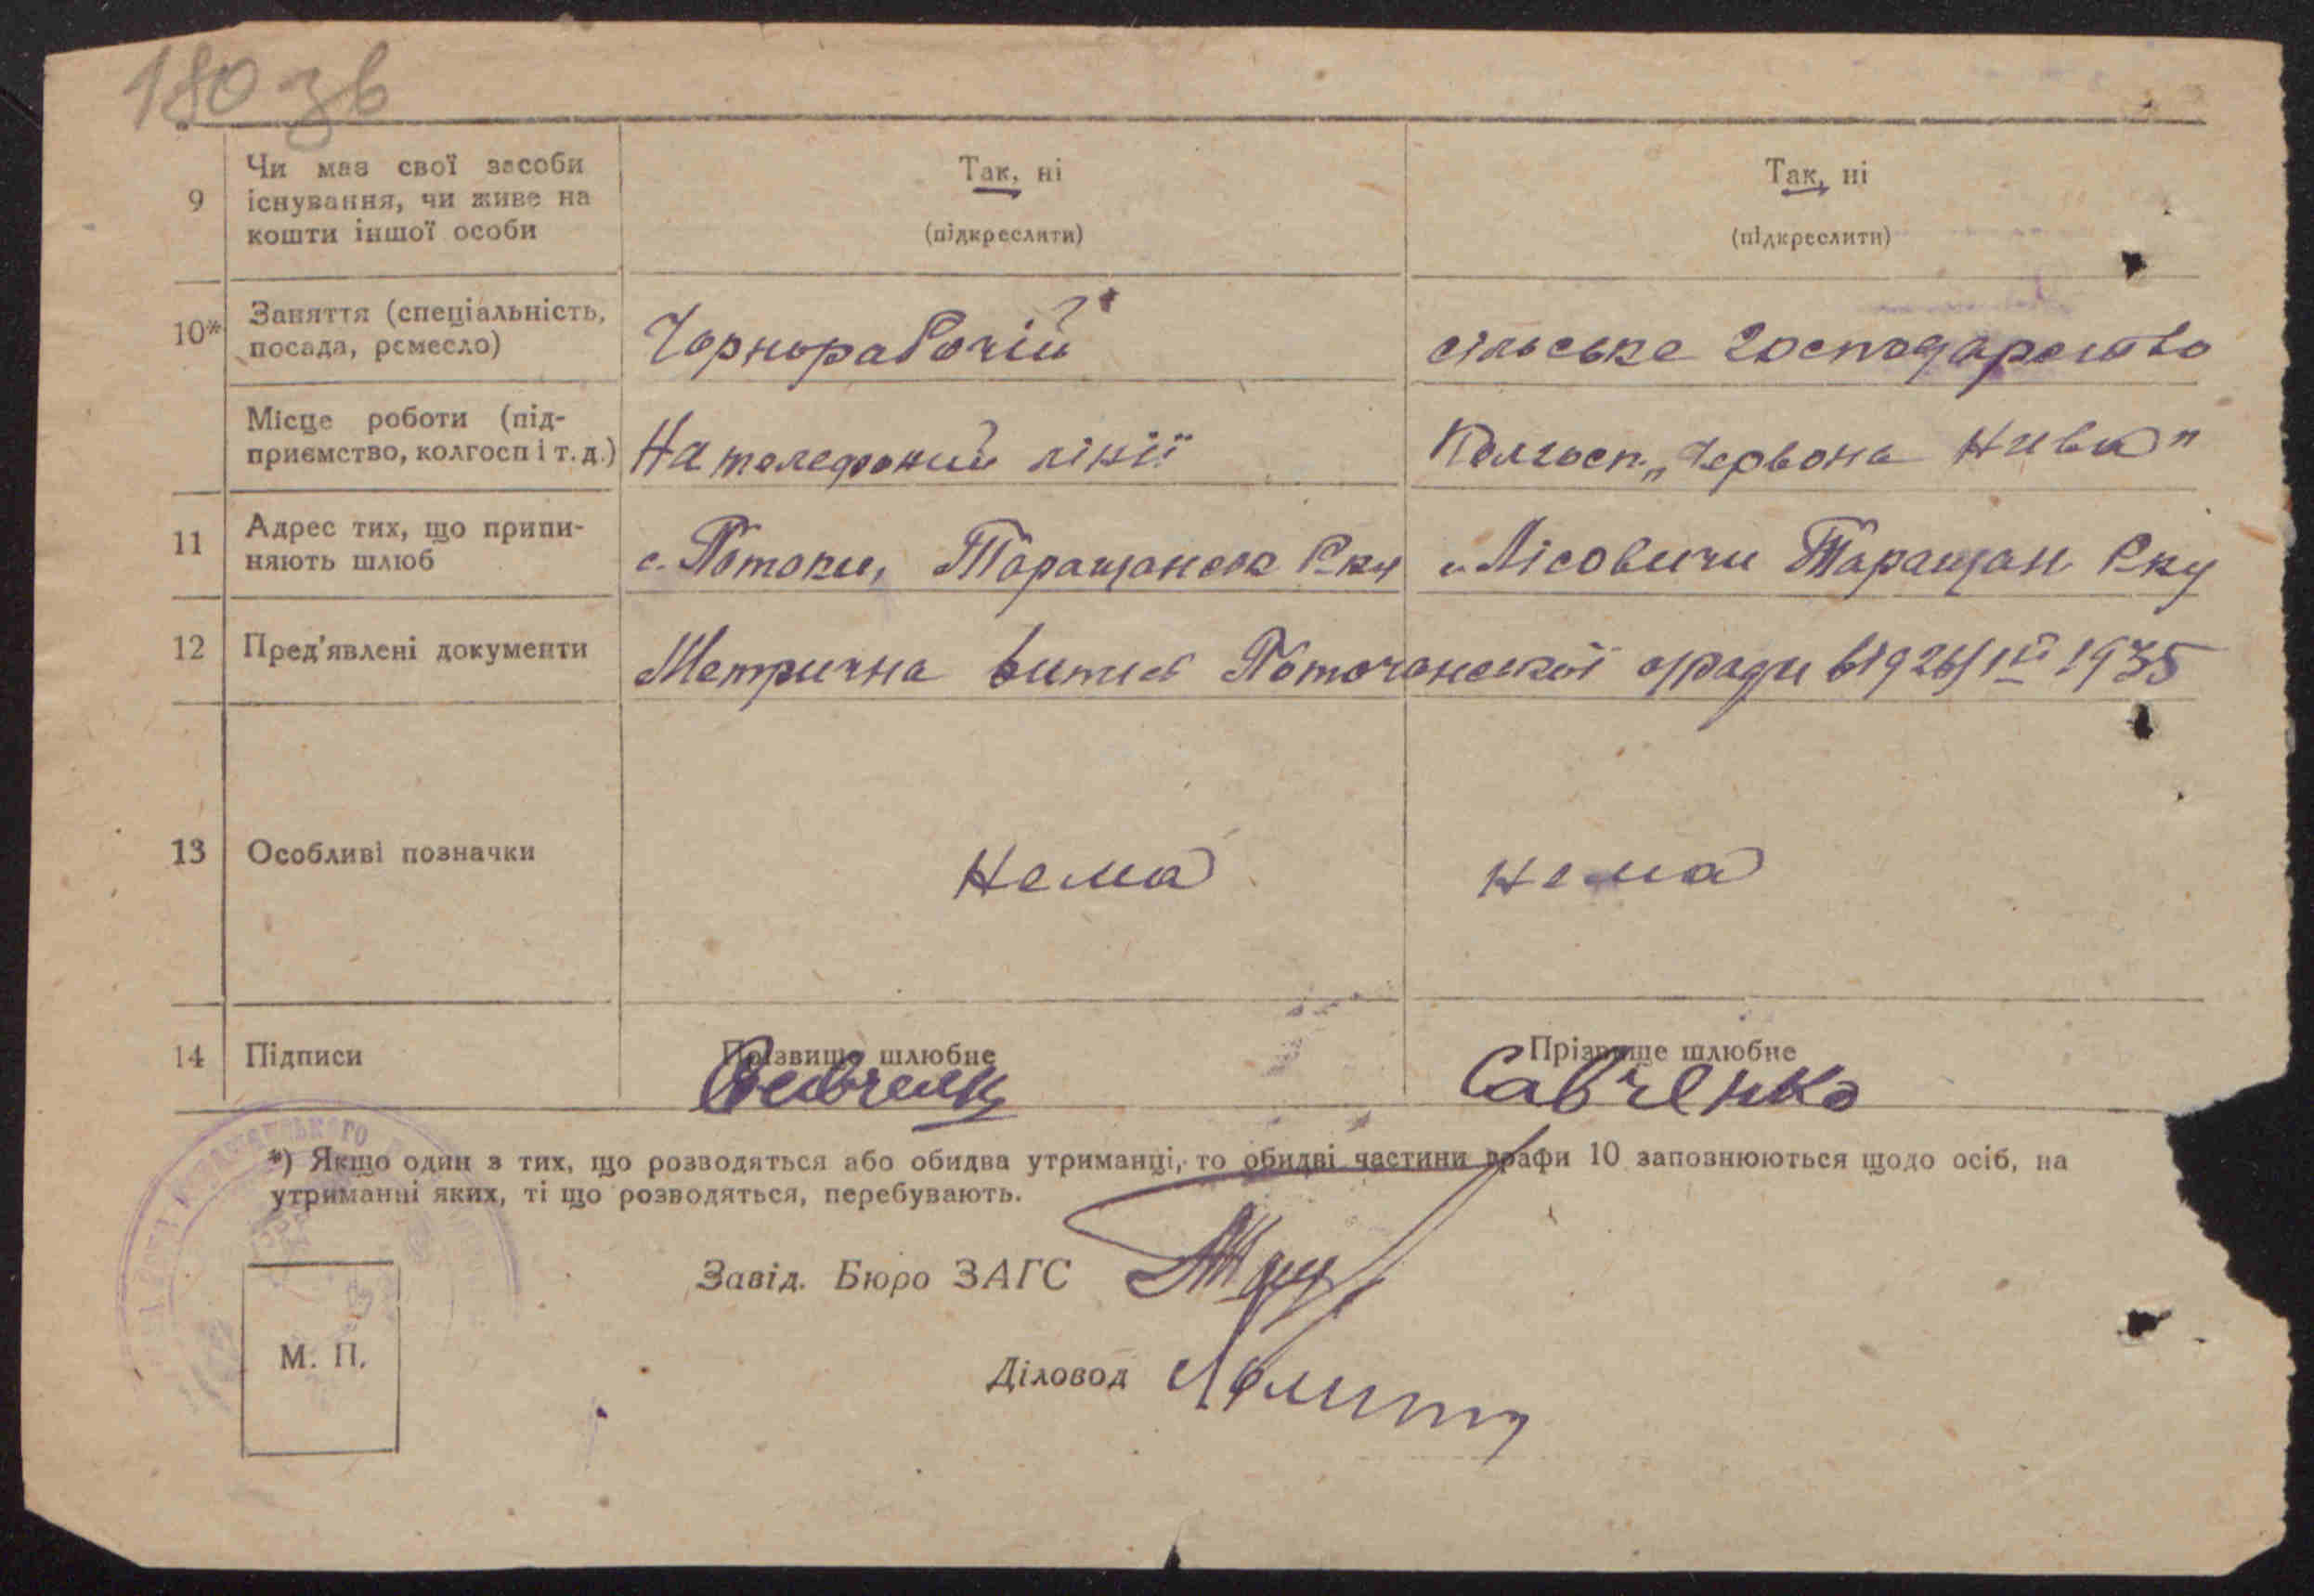 180 зв
9 Чи має свої засоби існування, чи живе на кошти іншої особи
Так, ні
(підкреслити)
Так, ні
(підкреслити)
10* Заняття (спеціальність, посада, ремесло)
Чорнорабочій
сільське господарство
Місце роботи (підприємство, колгосп і т. д.)
На телефоний лінії
Колгосп „Червона Нива"
11 Адрес тих, що припиняють шлюб
с. Потоки, Таращанськ Р-ку
с. Лісовичи Таращан Р-ку
12 Пред'явлені документи
Метрична Поточанської с/ради 1935
13 Особливі позначки
Нема
нема
14 Підписи
Прізвище шлюбне
Савченко
Прізвище шлюбне
Савченко
*) Якщо один з тих, що розводяться або обидва утриманці, то обидві частини графи 10 заповнюються щодо осіб, на
утриманні яких, ті що розводяться, перебувають.
Завід. Бюро ЗАГС
Діловод
М. П.